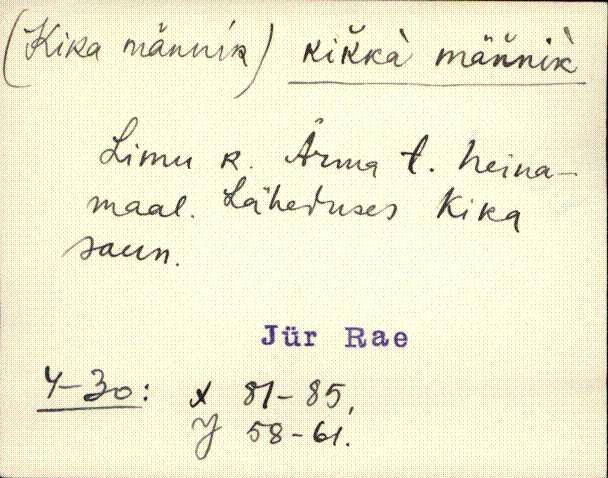 (Kika männik) kik̆kà män̆nìk
Limu k. Ärma t. heina-
maal. Läheduses Kika
saun.
Jür Rae
4-30: X 81-85,
Y 58-61.